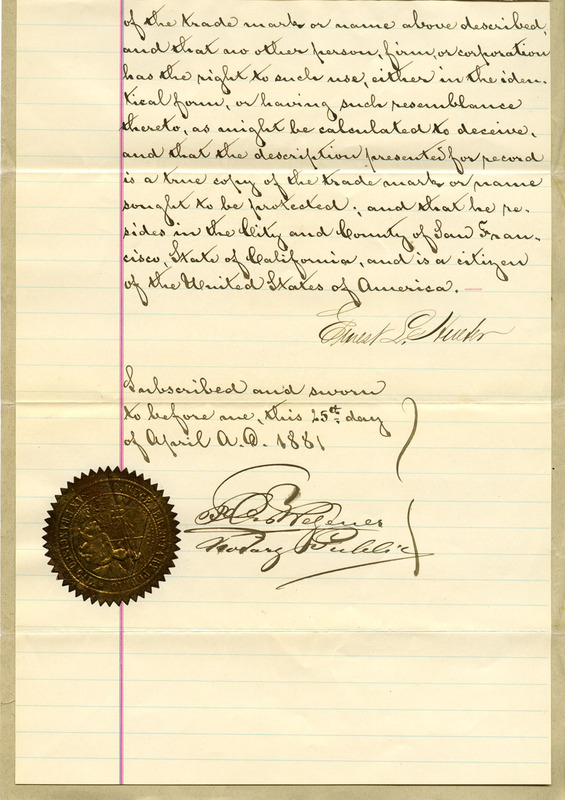 of the trade mark or name above described,
and that no other person, firm, or corporation
has the right to such use, either in the iden-
tical form, or having such resemblance
thereto, as might be calculated to deceive,
and that the description presented for record
is a true copy of the trade mark or name
sought to be protected; and that he re-
sides in the City and County of San Fran-
cisco, State of California, and is a citizen
of the United States of America.
Ernest L. Hueter
Subscribed and sworn
to before me, this 25th day
of April A.D. 1881
Notary Public